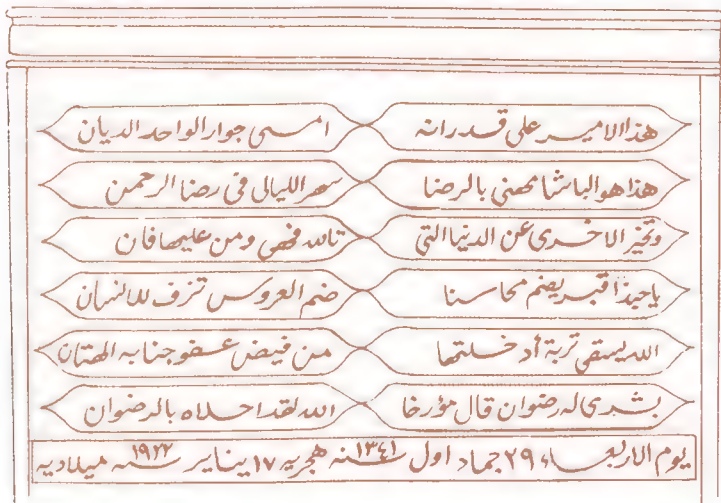 هذا الامير على قدرانه امسى جوار الواحد الديان
هذا هو الباشا مهني بالرضا سهر الليالى فى رضا الرحمن
وتخير الاخرى عن الدنيا التي تالله فهى ومن عليها فان
ياحبذا قبر يضم محاسنا ضم العروس تزف للانسان
الله يسقى تربة أدخلتها من فيض عفو جنابه الهتان
بشرى له رضوان قال مؤرخا الله لقد احلاه بالرضوان
يوم الاربعاء ٢٩ جماد اول سنه ١٣٤١ هجريه ١٧ يناير سنه ١٩٢٢ ميلاديه